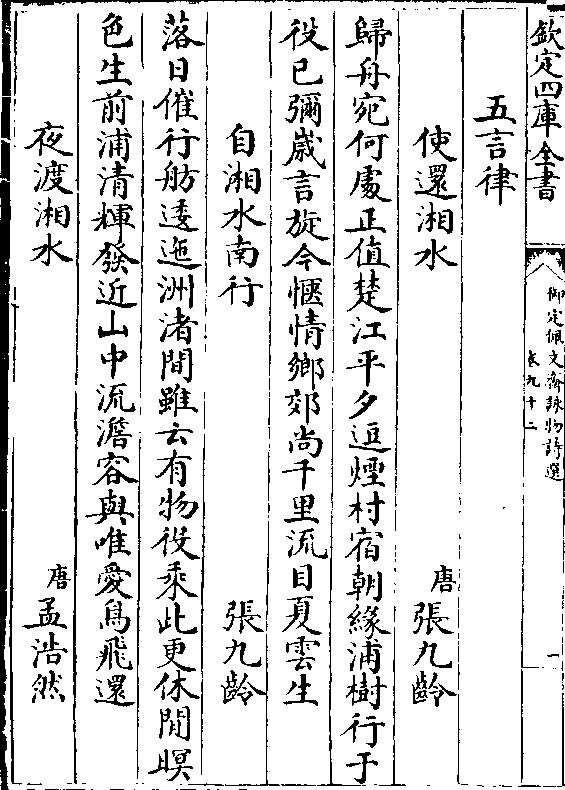 欽定四庫全書
御定佩文齋詠物詩選
卷九十二
一
五言律
使還湘水 唐 張九齡
歸舟宛何處正值楚江平夕逗煙村宿朝緣浦樹行于
役已彌歲言旋今愜情鄉郊尚千里流目夏雲生
自湘水南行 張九齡
落日催行舫逶迤洲渚間雖云有物役乘此更休閒暝
色生前浦清輝發近山中流澹容與唯愛鳥飛還
夜渡湘水 唐 孟浩然